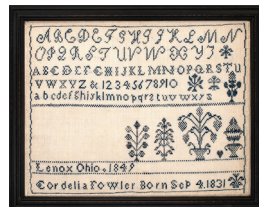 A B C D E F G H I J K L M N
O P Q R S T U V W X Y Z
A B C D E F G H I J K L M N O P Q R S T U
V W X Y Z & 1 2 3 4 5 6 7 8 9 10
a b c d e f g h i k l m n o p q r s t u v w x y z
Lenox Ohio. 1849
Cordelia Fowler Born Sep 4. 1831